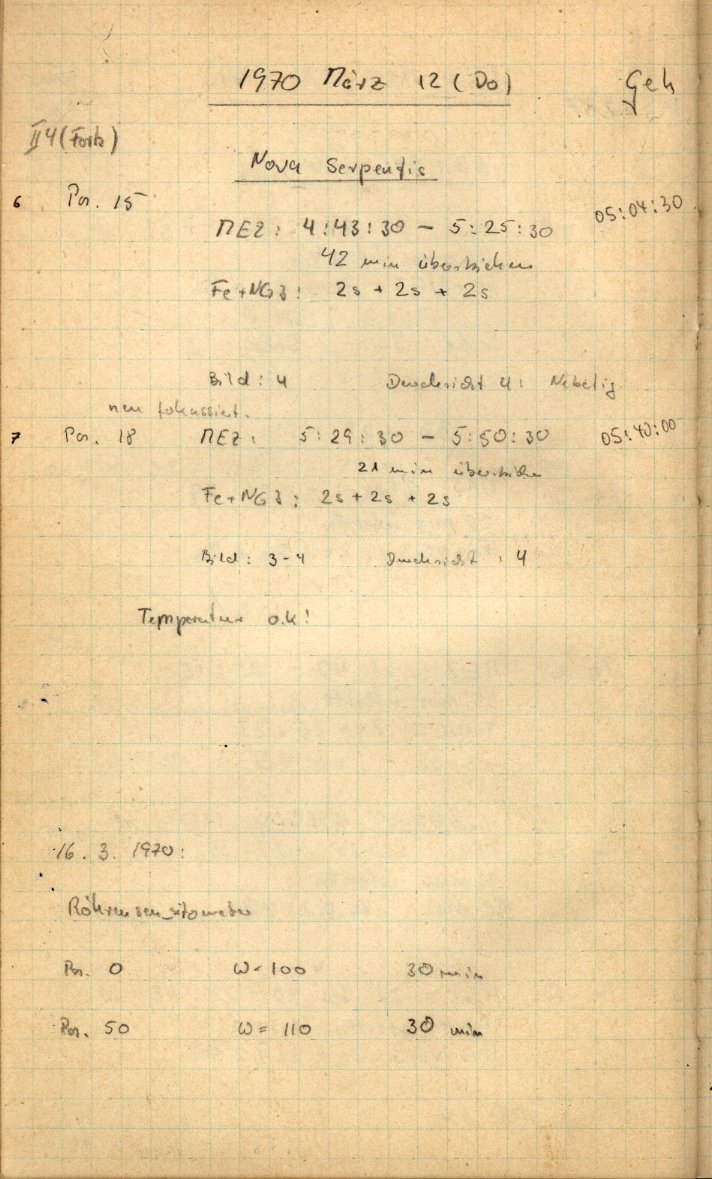 1970 März 12 (Do) Geh
II 4 (Forts)
Nova Serpentis
6 Pos. 15
MEZ: 4:43:30 – 5:25:30 05:04:30
42 min überstrichen
Fe+NG3: 2s + 2s + 2s
Bild: 4 Durchsicht 4: Nebelig
neu fokussiert.
7 Pos. 18 MEZ: 5:29:30 – 5:50:30 05:40:00
21 min überstrichen
Fe+NG3: 2s + 2s + 2s
Bild: 3-4 Durchsicht: 4
Temperatur o.k!
16. 3. 1970:
Röhrensensitometer
Pos. 0 ω = 100 30 min
Pos. 50 ω = 110 30 min